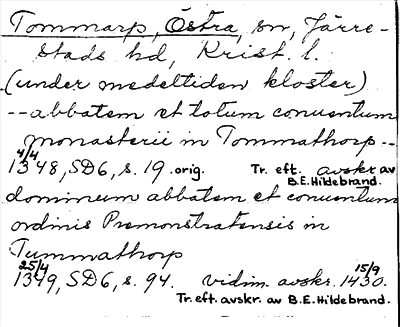 Tommarp, Östra, sn, Järre-
stads hd, Krist. l.
(under medeltiden kloster)
--abbatem et totum conuentum
monasterii in Tommathorp--
4/4 1348, SD6, s. 19. orig. Tr. eft. avskr av
B.E. Hildebrand.
dominum abbatem et conuentum
ordinis Premonstratensis in
Tummathorp
25/4 1349, SD6, s. 94. vidim. avskr. 15/9 1430.
Tr. eft. avskr. av B.E. Hildebrand.